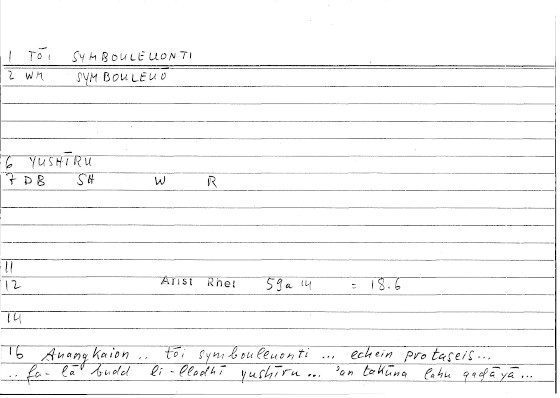 1 TŌI SYMBOULEUONTI
2 WM SYMBOULEUŌ
6 YUSHĪRU
7 DB SH W R
11
12 Arist Rhet 59a14 = 18.6
14
16 Anangkaion .. tōi symbouleuonti ... echein protaseis...
.. fa-lā budd li-lladhī yushīru... 'an takūna lahu qaḍāyā...